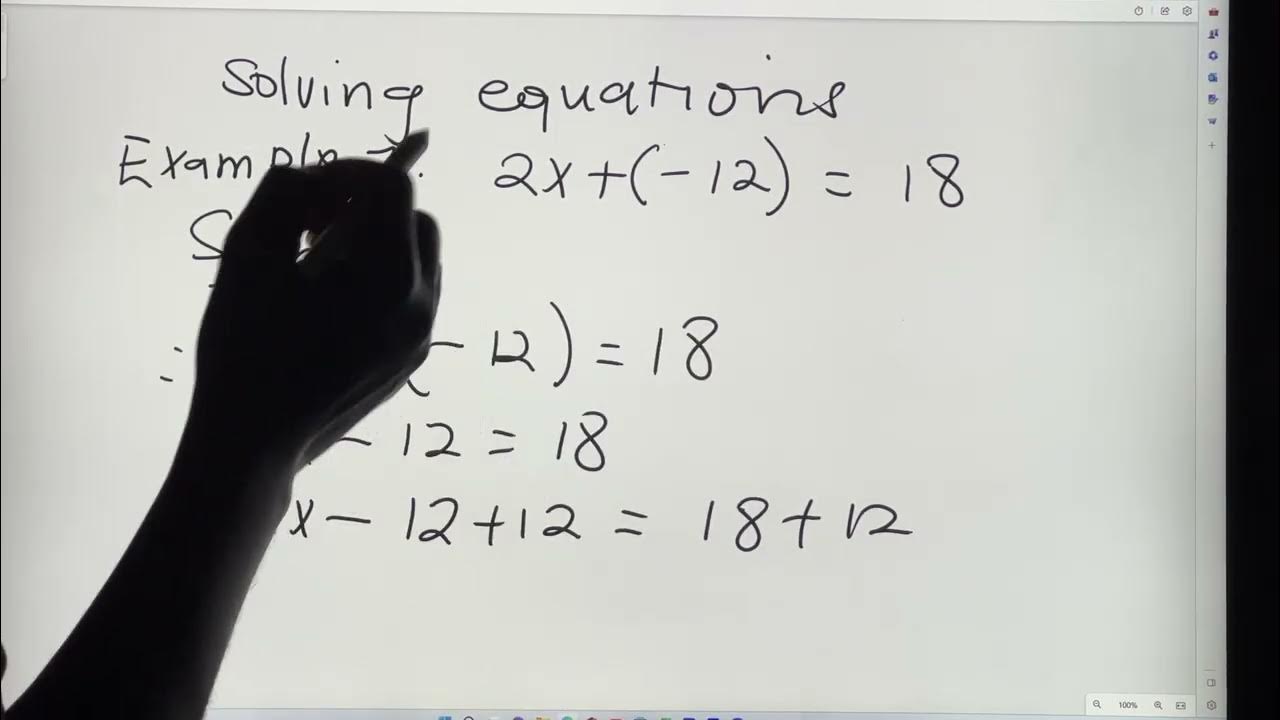 Solving equations
Example 2x+(-12) = 18
- 12) = 18
- 12 = 18
x - 12+12 = 18+12
100%